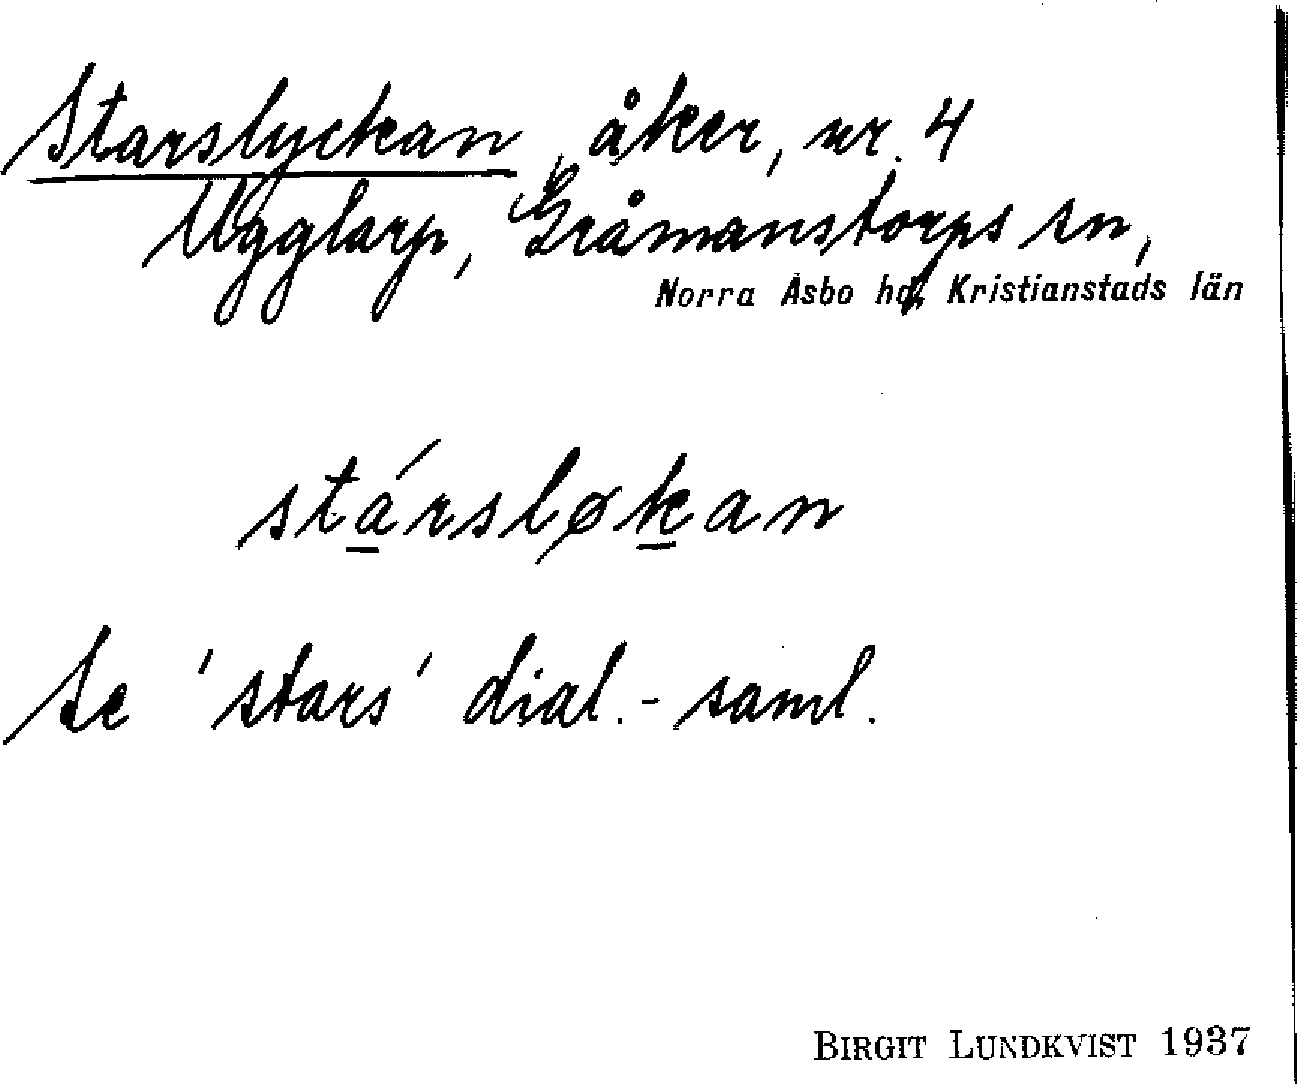 Starslyckan, åker, nr. 4
Ugglarp, Gråmanstorps sn,
Norra Åsbo hd, Kristianstads län
stársløkan
Se 'stars' dial.-saml.
BIRGIT LUNDKVIST 1937